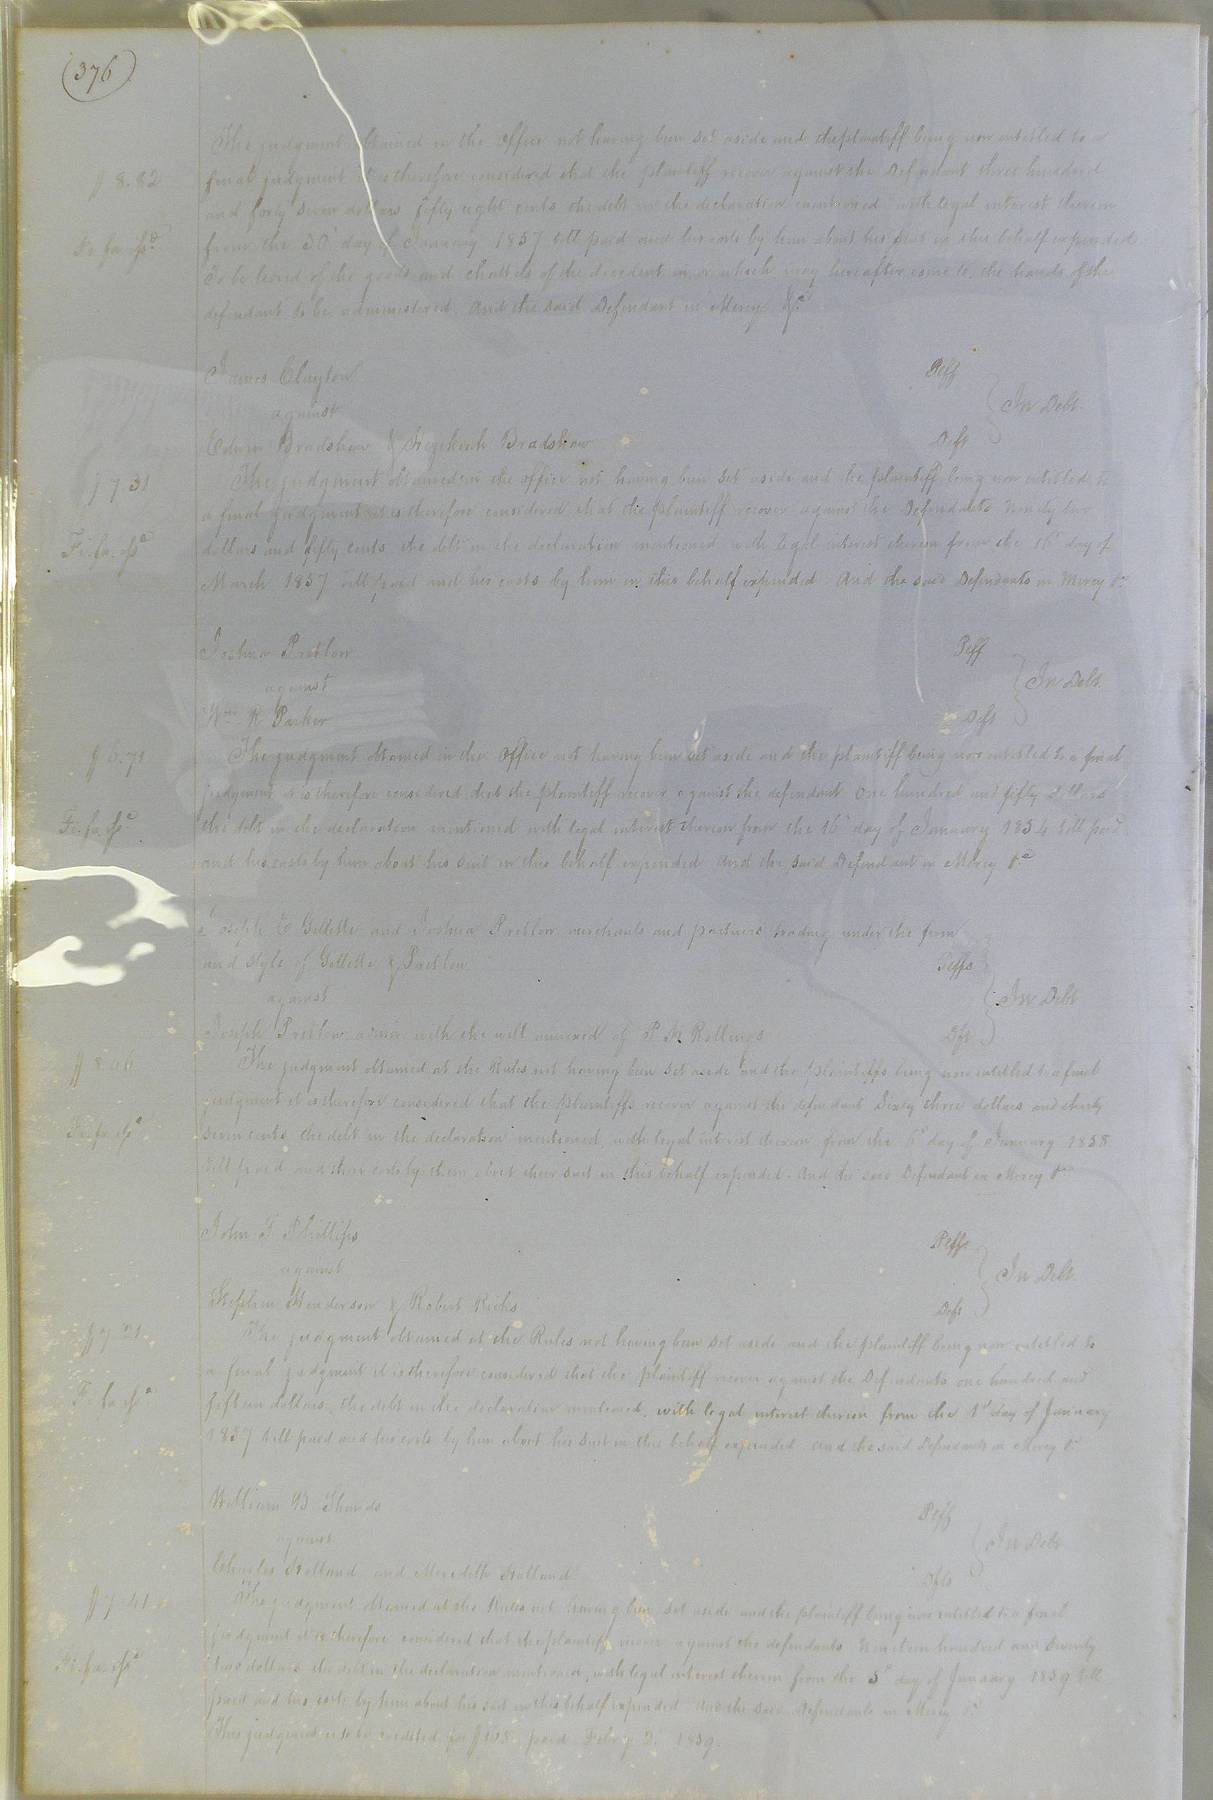 (376)
The judgment obtained in the office not having been set aside and the plaintiff being now entitled to a
$ 8.82
final judgment it is therefore considered that the plaintiff recover against the Defendant three hundred
and forty seven dollars fifty eight cents the debt in the declaration mentioned with legal interest thereon
Fi. fa.
from the 30 day of January 1857 till paid and his costs by him about his suit in this behalf expended
To be levied of the goods and chattels of the decedent in or which may hereafter come to the hands of the
defendant to be administered. And the said Defendant in Mercy &c
James Clayton Plff
against In Debt
Edwin Bradshaw & Hezekiah Bradshaw Deft
The judgment obtained in the office not having been set aside and the plaintiff being now entitled to
$ 7.31
a final judgment it is therefore considered that the plaintiff recover against the Defendants Ninety two
dollars and fifty cents the debt in the declaration mentioned with legal interest thereon from the 16 day of
Fi. fa.
March 1857 till paid and his costs by him in this behalf expended And the said Defendants in Mercy &c
Joshua Pretlow Plff
against In Debt
Wm R Parker Deft
The judgment obtained in the office not having been set aside and the plaintiff being now entitled to a final
$ 6.71
judgment it is therefore considered that the plaintiff recover against the defendant One hundred and fifty dollars
the debt in the declaration mentioned with legal interest thereon from the 16 day of January 1854 till paid
Fi. fa.
and his costs by him about his suit in this behalf expended And the said Defendant in Mercy &c
Joseph E Gillette and Joshua Pretlow merchants and partners trading under the firm
and style of Gillette & Pretlow Plffs
against In Debt
Joseph Pretlow admr with the will annexed of P. M. Rollings Dft
The judgment obtained at the Rules not having been set aside and the plaintiffs being now entitled to a final
judgment it is therefore considered that the plaintiffs recover against the defendant Sixty three dollars and thirty
seven cents the debt in the declaration mentioned with legal interest thereon from the 6 day of January 1858
Fi. fa.
till paid and their costs by them about their suit in this behalf expended. And the said Defendant in Mercy &c
John F Phillips Plff
against In Debt
Stephen Henderson & Robert Ricks Defts
The judgment obtained at the Rules not having been set aside and the plaintiff being now entitled to
$ 7.21
a final judgment it is therefore considered that the plaintiff recover against the Defendants one hundred and
Fi. fa.
fifteen dollars, the debt in the declaration mentioned, with legal interest thereon from the 1st day of January
1857 till paid and his costs by him about his suit in this behalf expended And the said Defendants in Mercy &c
William B Shands Plff
against In Debt
Charles Holland and Meredith Holland Dfts
The judgment obtained at the Rules not having been set aside and the plaintiff being now entitled to a final
$ 7.41
judgment it is therefore considered that the plaintiff recover against the defendants Nineteen hundred and twenty
two dollars the debt in the declaration mentioned, with legal interest thereon from the 5th day of January 1859 till
Fi. fa.
paid and his costs by him about his suit in this behalf expended And the said Defendants in Mercy &c
This judgment is to be credited for paid Feby 2. 1859.